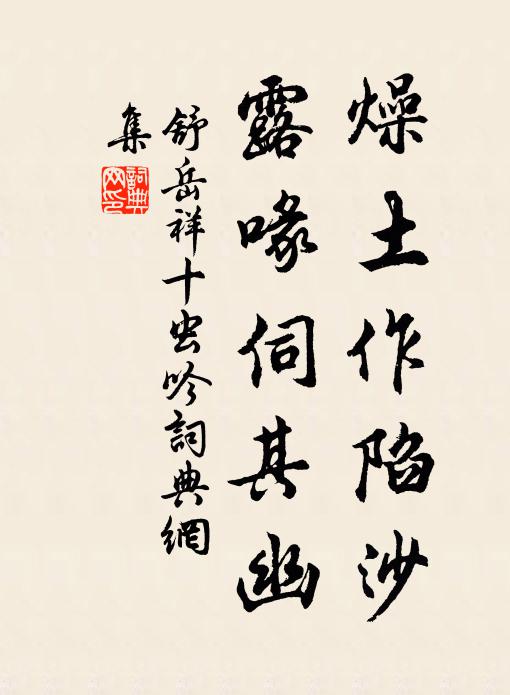 燥土作陷沙
露喙伺其幽
舒岳祥十虫吟詞典網
集
詞典网印